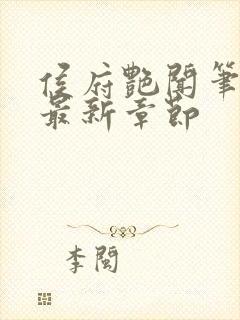 侯府艷聞筆
最新章節
李閩